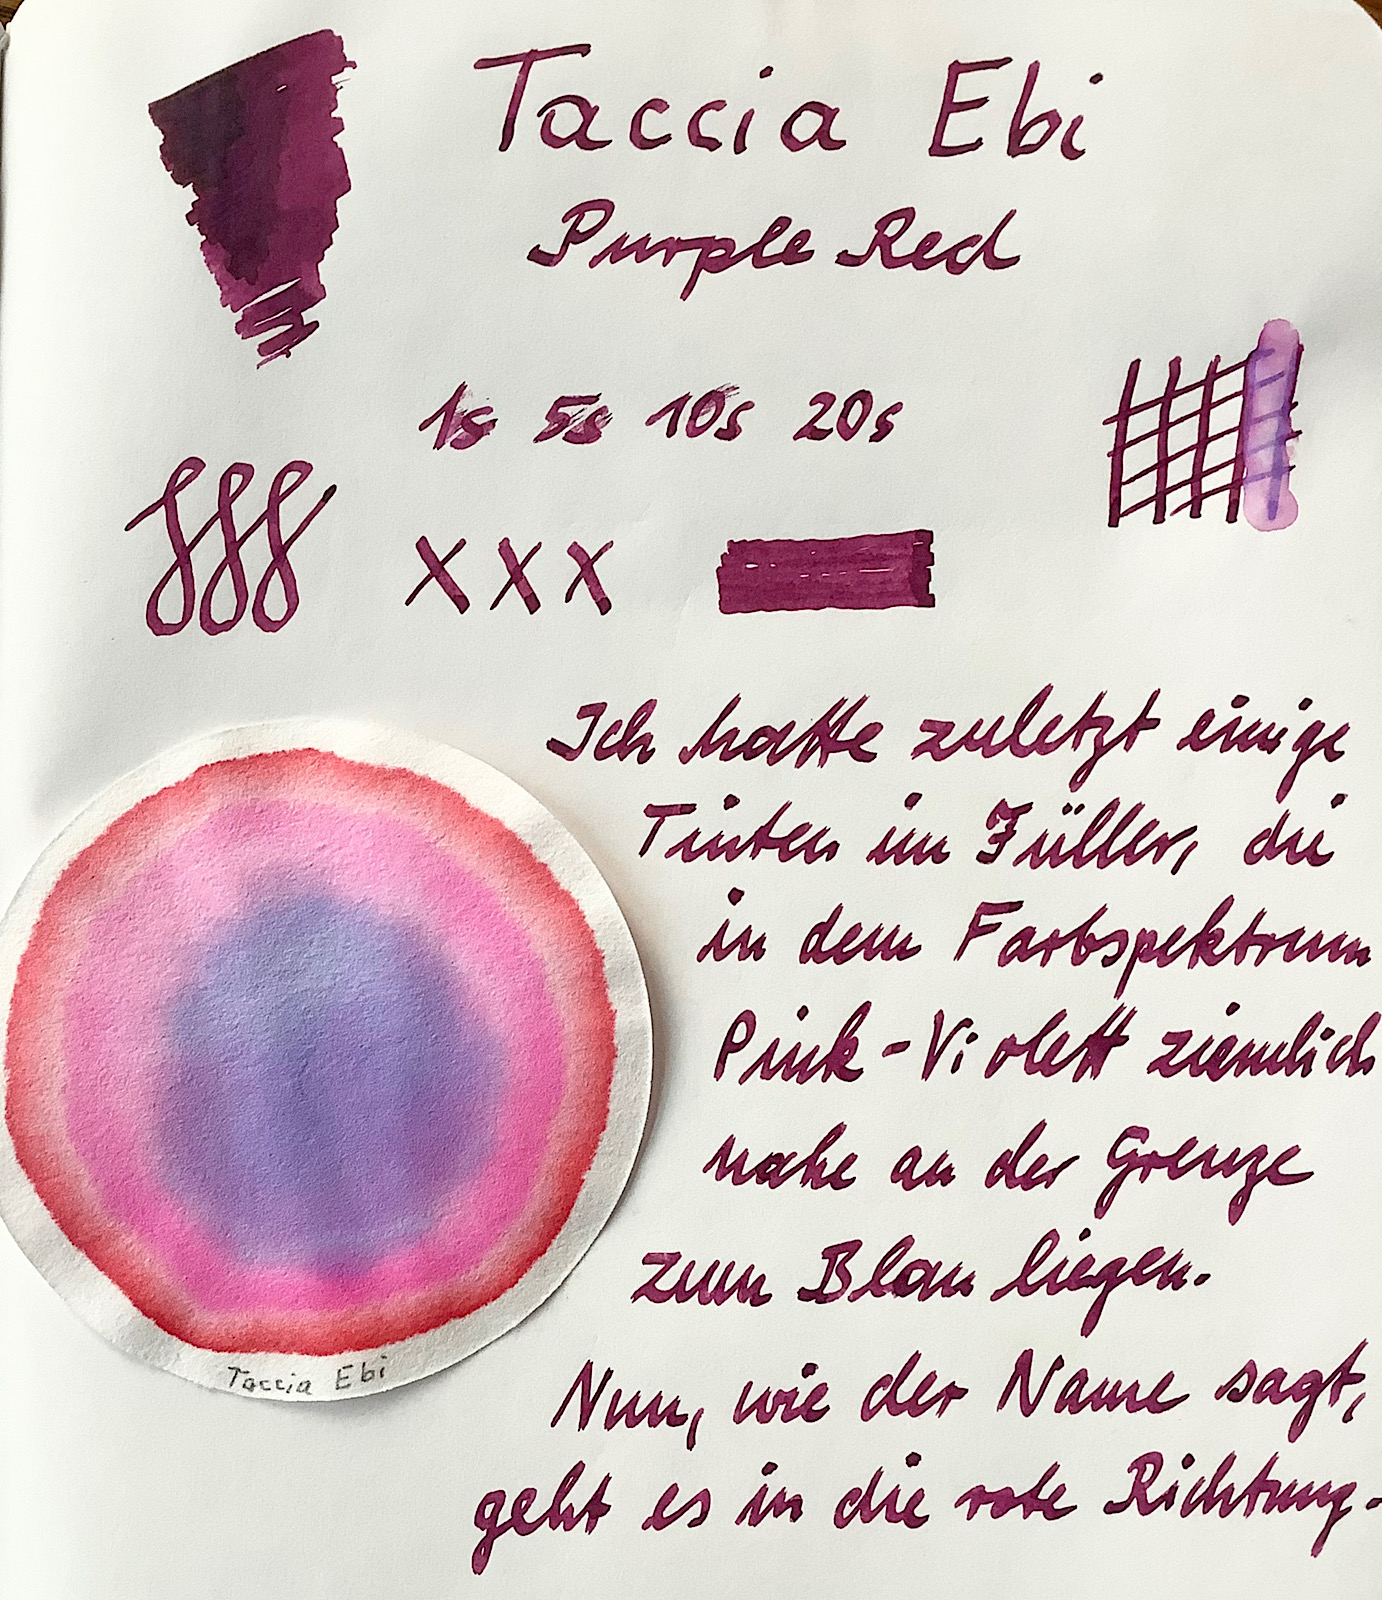 Taccia Ebi
Purple Red
1s 5s 10s 20s
x x x
Ich hatte zuletzt einige
Tinten im Füller, die
in dem Farbspektrum
Pink-Violett ziemlich
nahe an der Grenze
zum Blau liegen.
Nun, wie der Name sagt,
geht es in die rote Richtung.
Taccia Ebi